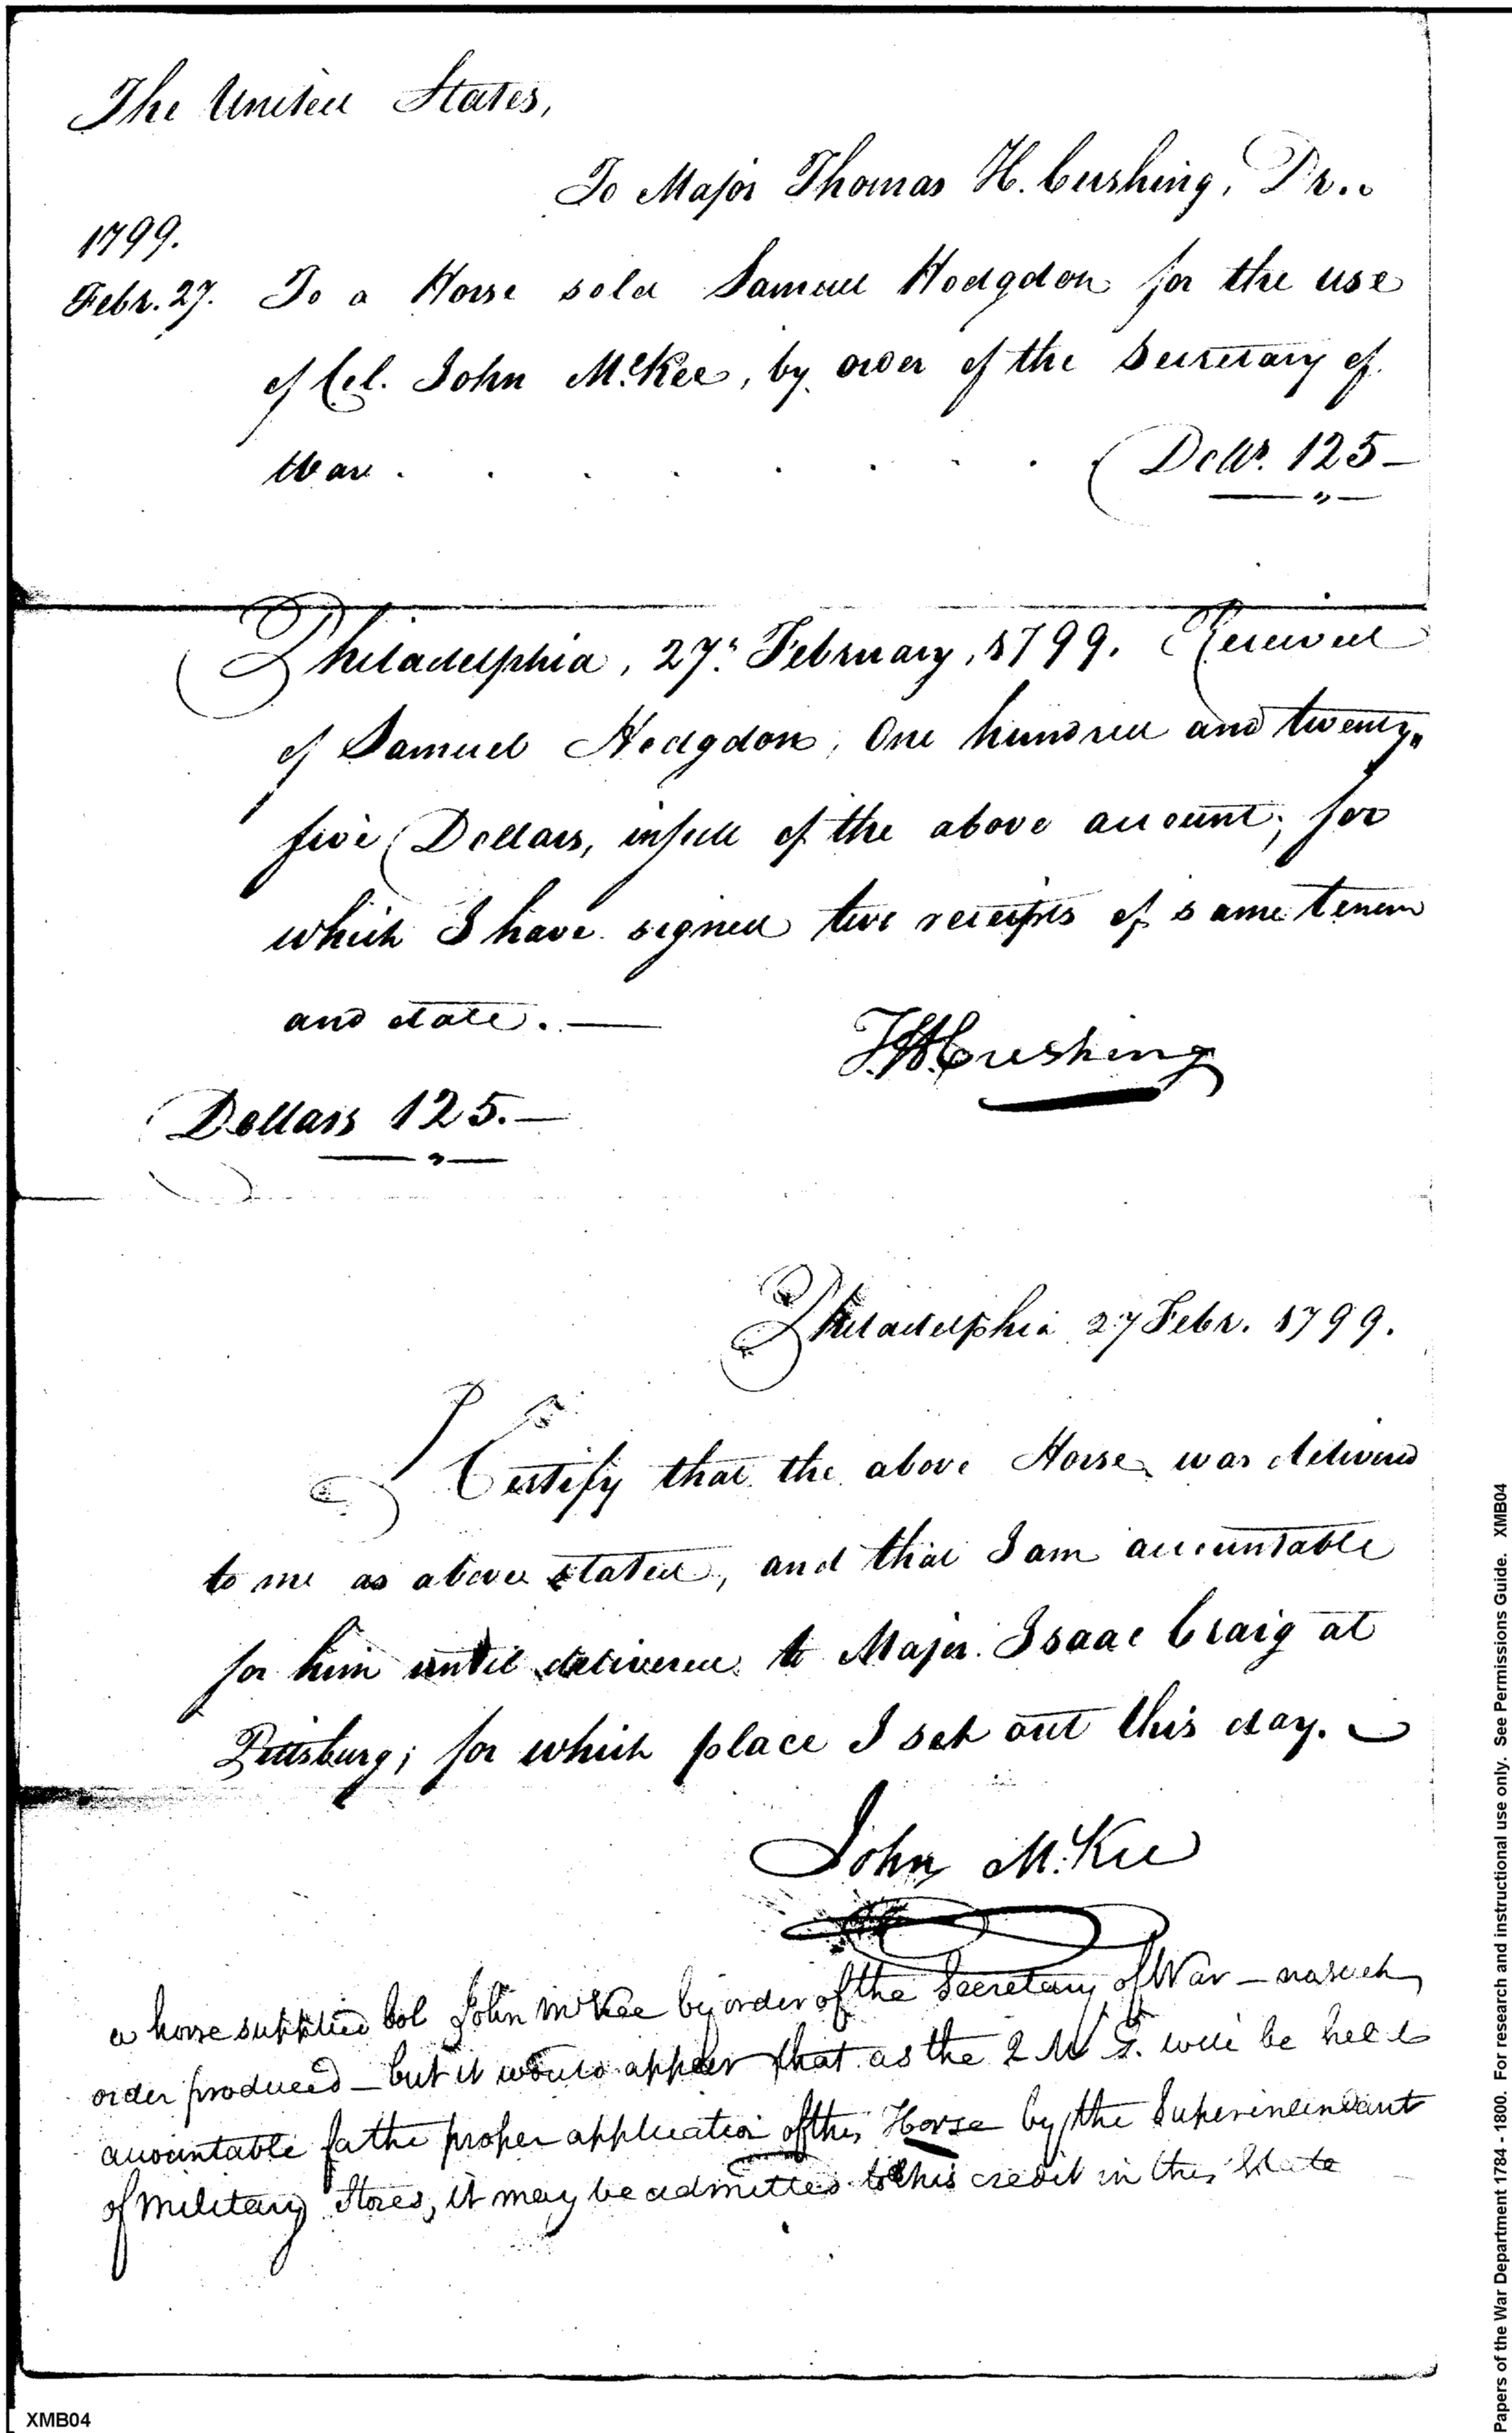 The United States,
To Major Thomas H. Cushing, Dr..
1799.
Febr. 27. To a Horse sold Samuel Hodgdon for the use
of Col. John McKee, by order of the Secretary of
War . . . . . . . . Dolls. 125 —
Philadelphia, 27th February, 1799. Received
of Samuel Hodgdon, One hundred and twenty
five Dollars, in full of the above account; for
which I have signed two receipts of same tenor
and date. —
THCushing
Dollars 125. —
Philadelphia 27 Febr. 1799.
I Certify that the above Horse was delivered
to me as above stated, and that I am accountable
for him until delivered to Major Isaac Craig at
Pittsburg; for which place I set out this day.
John McKee
a horse supplied Col John McKee by order of the Secretary of War — no such
order produced — but it would appear that as the Q M G. will be held
accountable for the proper application of this Horse by the Superintendant
of Military Stores, it may be admitted to his credit in this State
XMB04
Papers of the War Department 1784 - 1800. For research and instructional use only. See Permissions Guide. XMB04